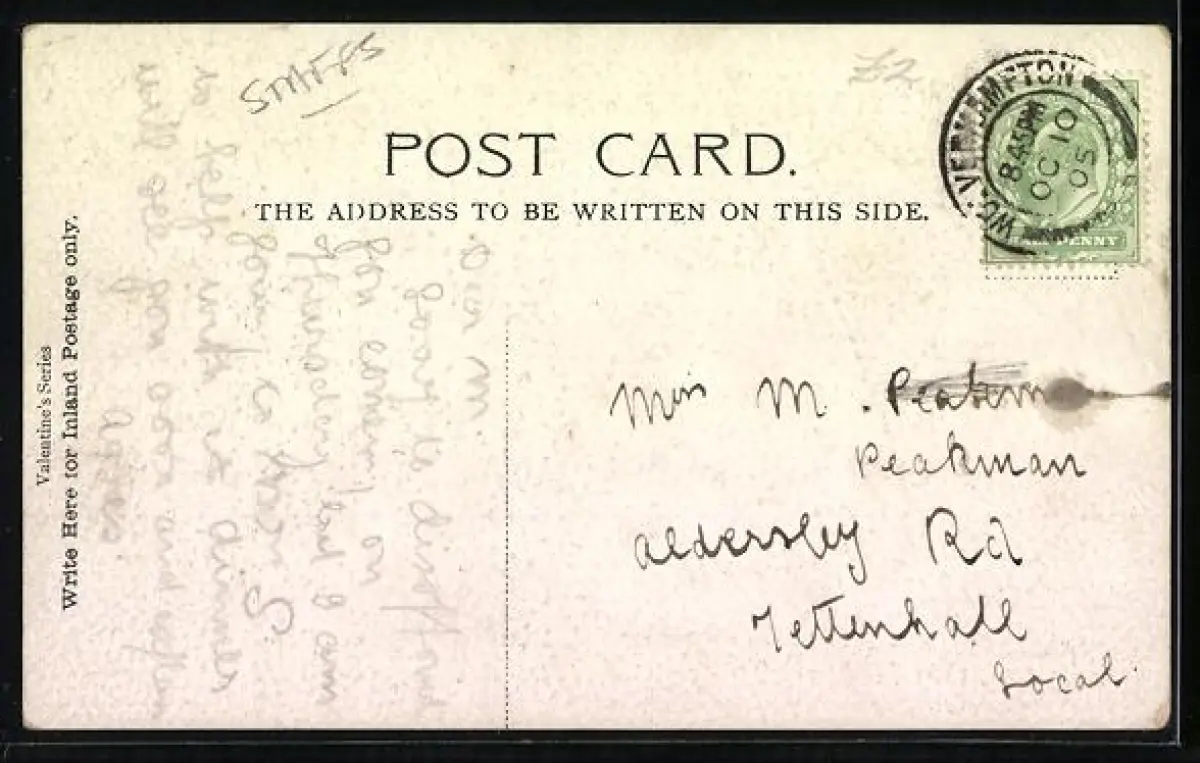 STAMPS
£2
POST CARD.
THE ADDRESS TO BE WRITTEN ON THIS SIDE.
WOLVERHAMPTON
8 45 PM
OC 10
05
HALFPENNY
Valentine's Series
Write Here for Inland Postage only.
Dear M.
Sorry to disappoint
you coming on
Thursday but I am
going to
to help with the dinners
will see you soon and explain
Agnes
Miss M. Peakman
Peakman
Aldersley Rd
Tettenhall
Local.